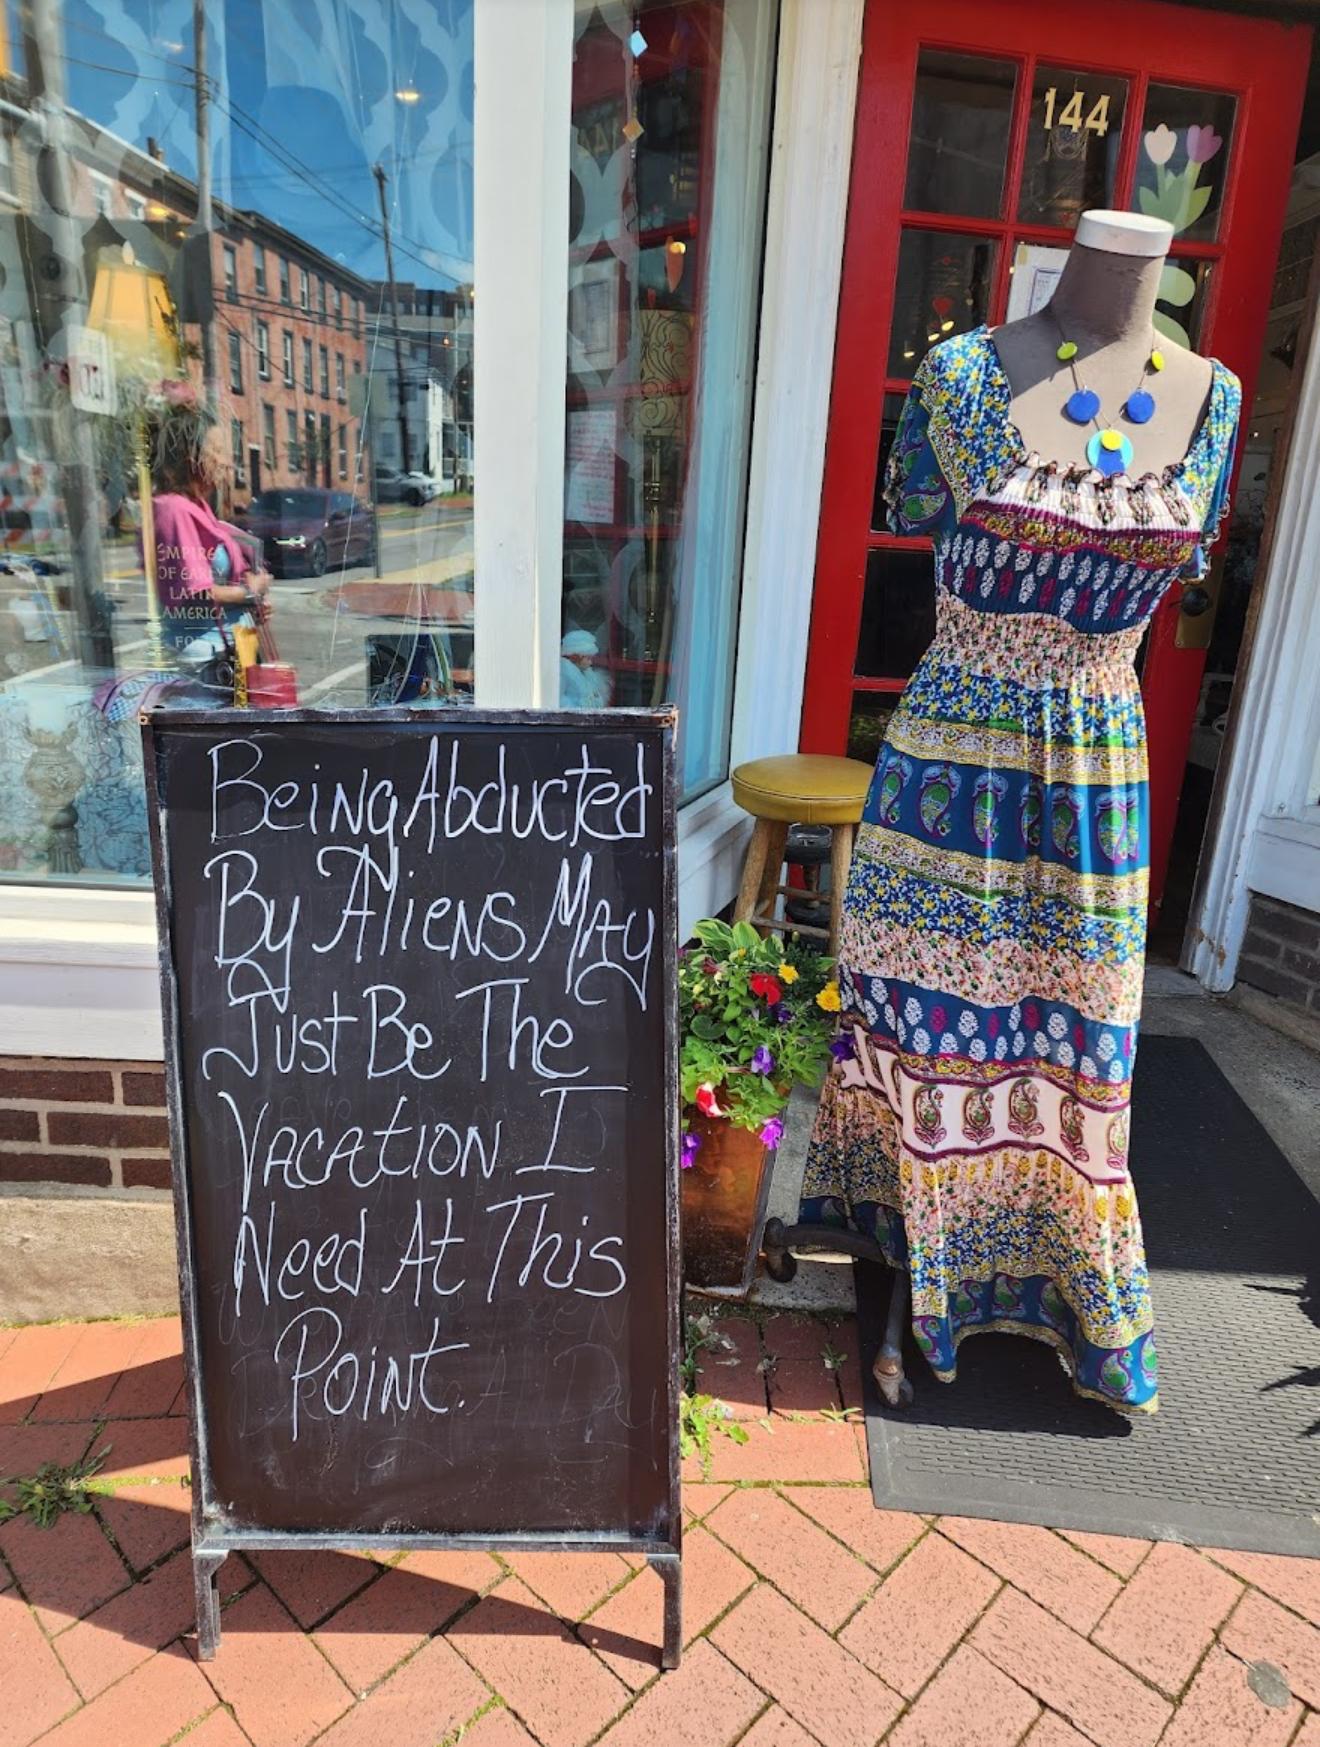 144
EMPIRE
OF EARLY
LATIN
AMERICA
Being Abducted
By Aliens May
Just Be The
Vacation I
Need At This
Point.